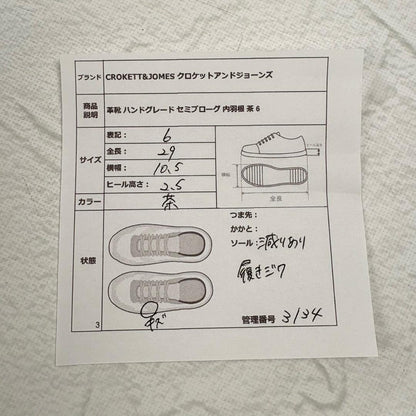 ブランド CROKETT&JOMES クロケットアンドジョーンズ
商品説明 革靴 ハンドグレード セミブローグ 内羽根 茶 6
サイズ
表記: 6
全長: 29
横幅: 10.5
ヒール高さ: 2.5
ヒール高さ
横幅
全長
カラー 茶
状態
つま先:
かかと:
ソール: 減りあり
履きジワ
キズ
3
管理番号 3134